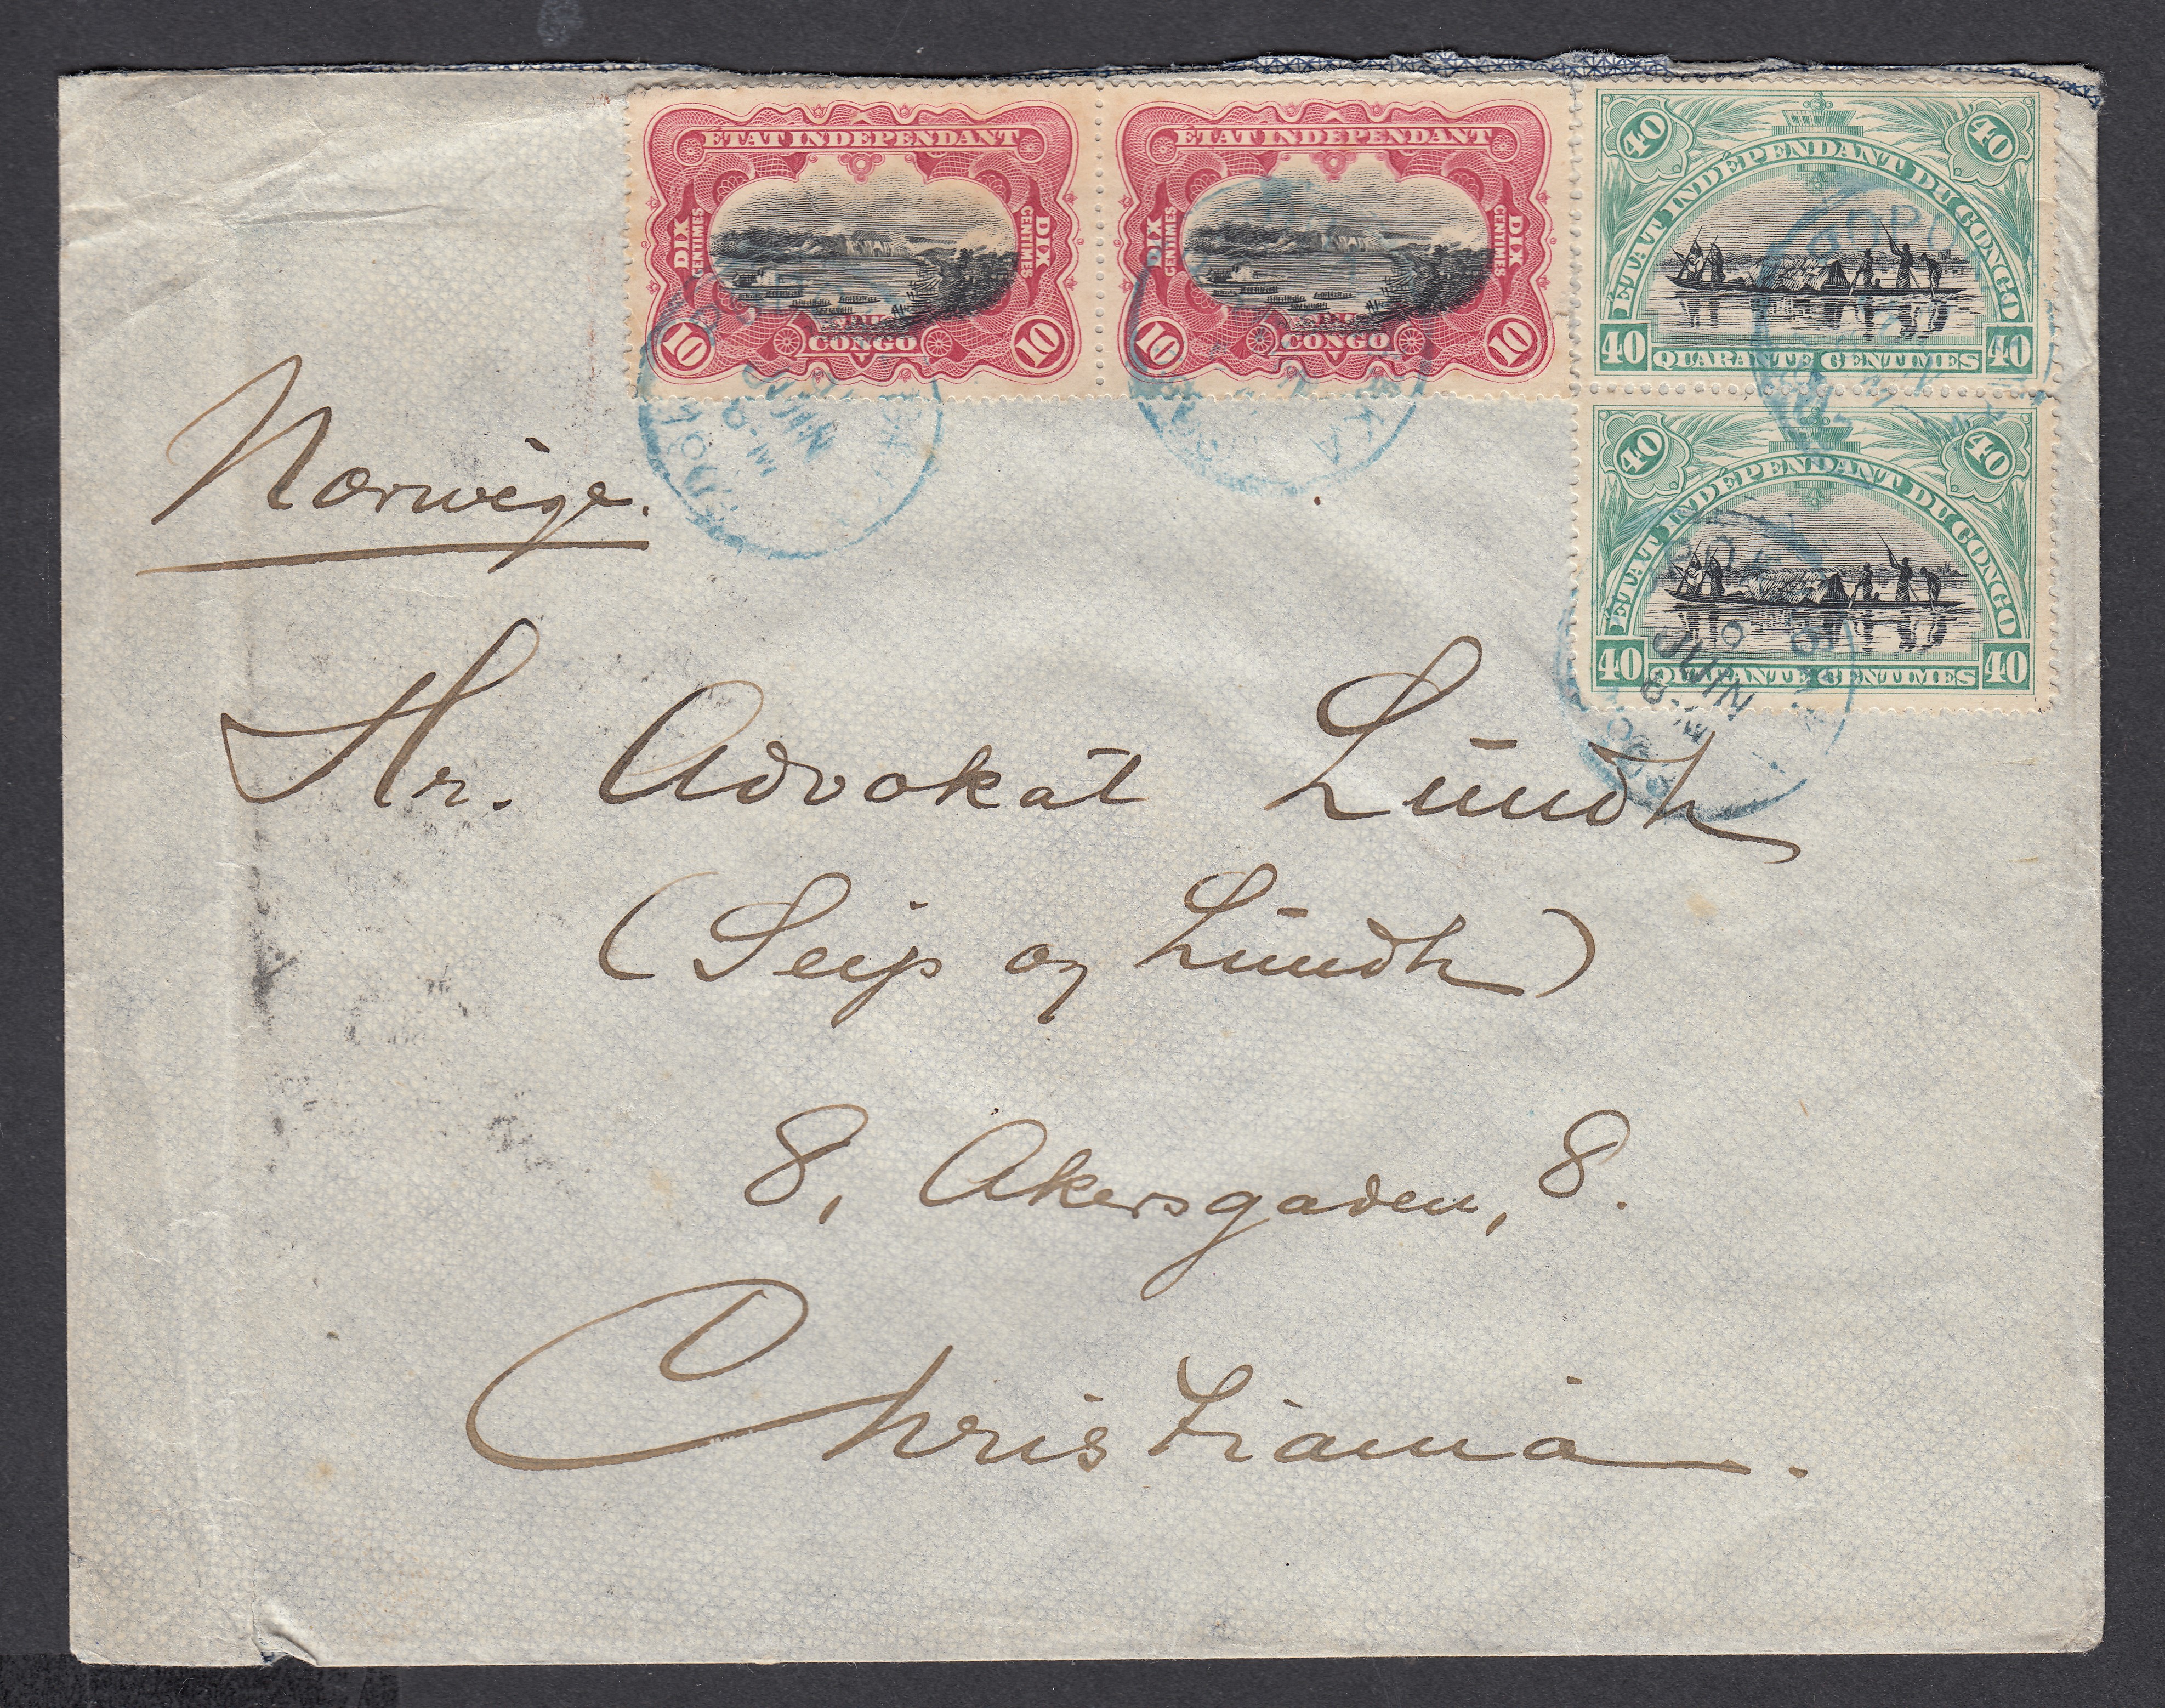 ETAT INDEPENDANT
DIX CENTIMES
DIX CENTIMES
10
DU CONGO
10
ETAT INDEPENDANT
DIX CENTIMES
DIX CENTIMES
10
DU CONGO
10
40
40
ÉTAT INDÉPENDANT DU CONGO
40 QUARANTE CENTIMES 40
40
40
ÉTAT INDÉPENDANT DU CONGO
40 QUARANTE CENTIMES 40
JUIN
JUIN
Norwège.
Hr. Advokat Lundh
(Seip og Lundh)
8, Akersgaden, 8.
Christiania.